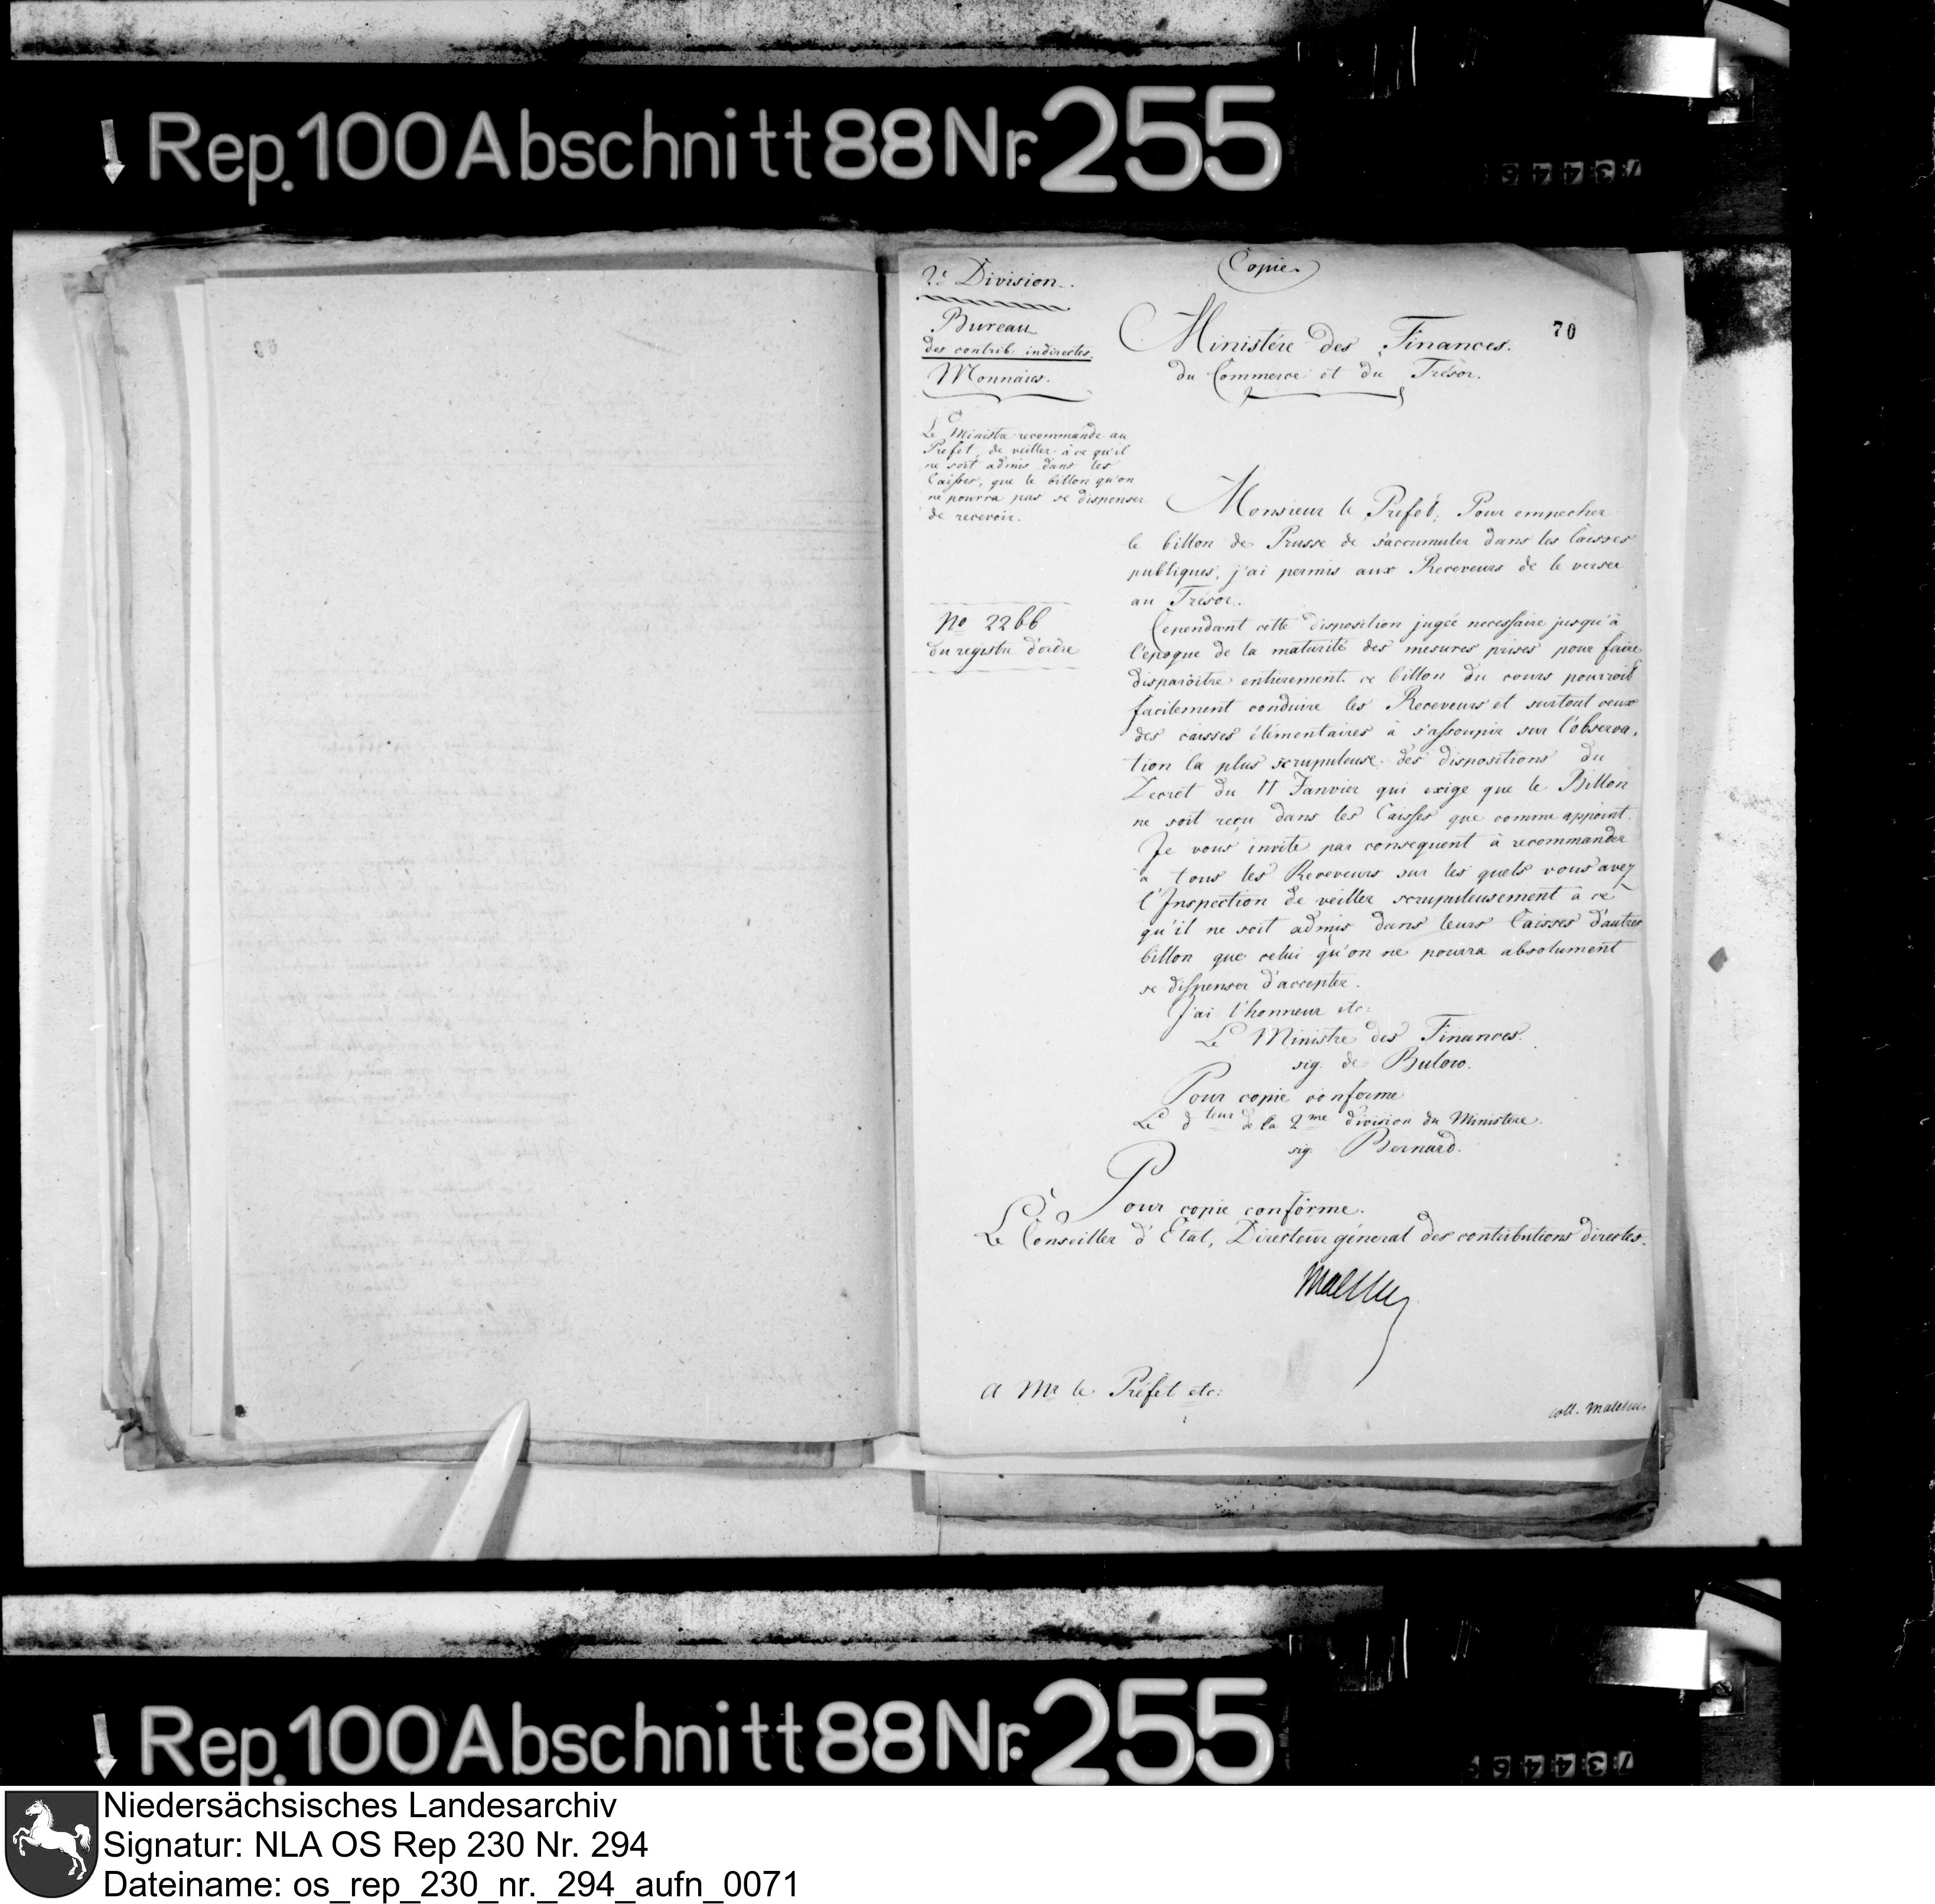 Rep. 100 Abschnitt 88 Nr. 255
Copie.
70
2e Division.
Bureau
des contrib: indirectes.
Monnaies.
Le Ministre recommande au
Préfet, de veiller à ce qu'il
ne soit admis dans les
Caisses, que le billon qu'on
ne pourra pas se dispenser
de recevoir.
No 2266
du registre d'ordre
Ministère des Finances.
du Commerce et du Trésor.
Monsieur le Préfet, Pour empecher
le billon de Prusse de s'accumuler dans les Caisses
publiques, j'ai permis aux Receveurs de le verser
au Trésor.
Cependant cette disposition jugée necessaire jusqu'à
l'epoque de la maturité des mesures prises pour faire
disparoitre entierement ce billon du cours pourroit
facilement conduire les Receveurs et surtout ceux
des caisses élémentaires à s'assoupir sur l'observa-
tion la plus scrupuleuse des dispositions du
Decret du 11 Janvier qui exige que le Billon
ne soit reçu dans les Caisses que comme appoint.
Je vous invite par consequent à recommander
à tous les Receveurs sur les quels vous avez
l'Inspection de veiller scrupuleusement à ce
qu'il ne soit admis dans leurs Caisses d'autres
billon que celui qu'on ne pourra absolument
se dispenser d'accepter.
J'ai l'honneur etc:
Le Ministre des Finances.
sig. de Bulow.
Pour copie conforme
Le dteur de la 2me division du Ministere.
sig. Bernard.
Pour copie conforme.
Le Conseiller d'Etat, Directeur général des contributions directes.
Malchus
A Mr le Préfet etc:
coll. Malchus
Rep. 100 Abschnitt 88 Nr. 255
Niedersächsisches Landesarchiv
Signatur: NLA OS Rep 230 Nr. 294
Dateiname: os_rep_230_nr._294_aufn_0071